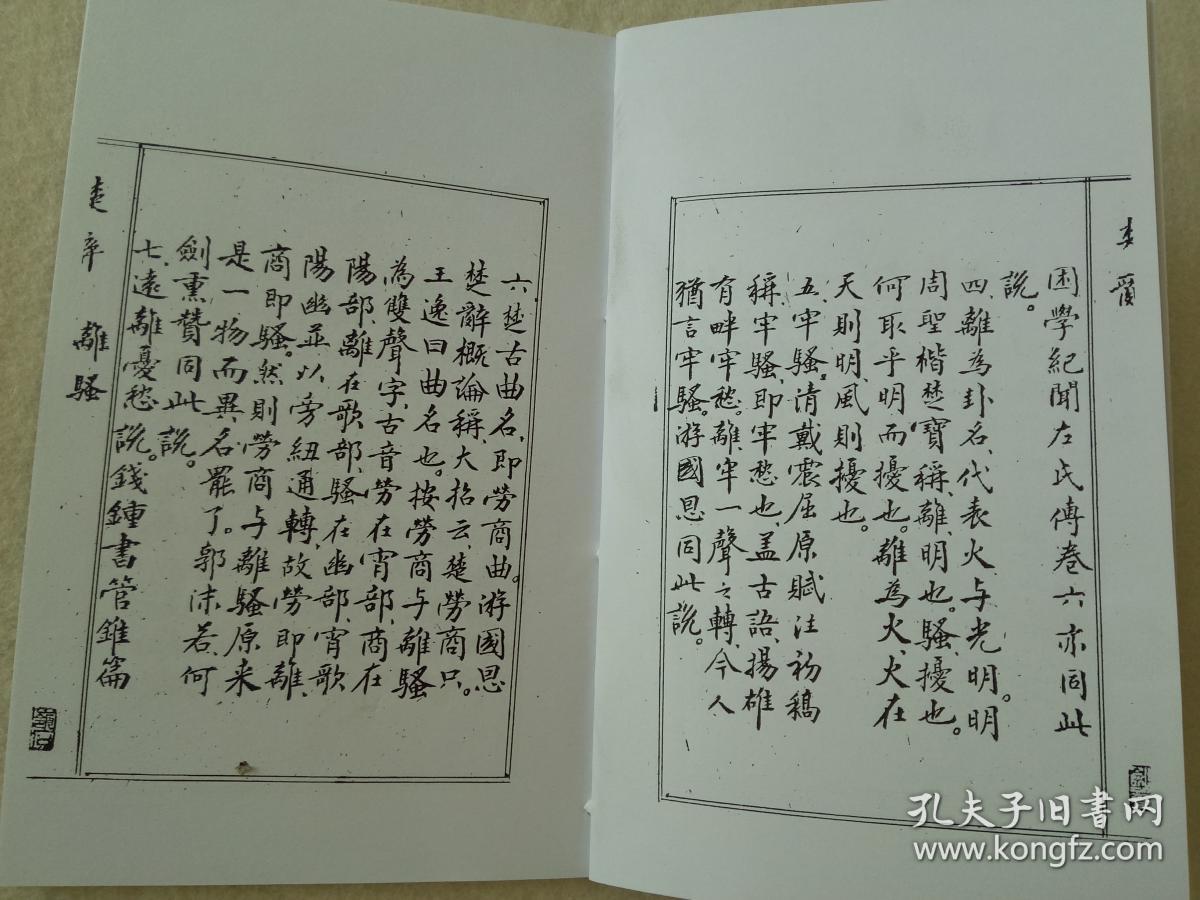 困學紀聞左氏傳卷六亦同此
說。
四、離為卦名,代表火与光明。明
周聖楷楚寶稱,離,明也。騷,擾也。
何取乎明而擾也。離為火,火在
天則明,風則擾也。
五、牢騷。清戴震屈原賦注初稿
稱,牢騷,即牢愁也,盖古語,揚雄
有畔牢愁。離、牢一聲之轉,今人
猶言牢騷。游國恩同此說。
六、楚古曲名,即勞商曲。游國恩
楚辭概論稱,大招云,楚勞商只。
王逸曰曲名也。按勞商与離騷
為雙聲字,古音勞在宵部,商在
陽部,離在歌部,騷在幽部,宵歌
陽幽並以旁紐通轉,故勞即離,
商即騷。然則勞商与離騷原来
是一物而異名罷了。郭沫若、何
劍熏贊同此說。
七、遠離憂愁說。錢鍾書管錐篇
離騷
孔夫子旧書网
www.kongfz.com